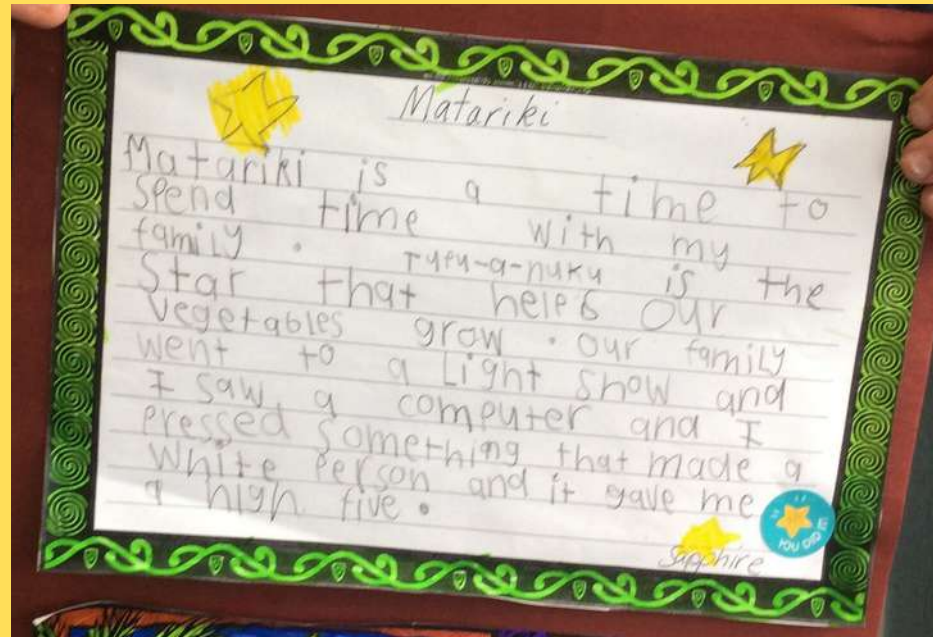 Matariki
Matariki is a time to
spend time with my
family. Tupu-a-nuku is the
Star that helps our
vegetables grow. our family
went to a Light show and
I saw a computer and I
pressed something that made a
white person and it gave me
a high five.
YOU DID IT!
Sapphire